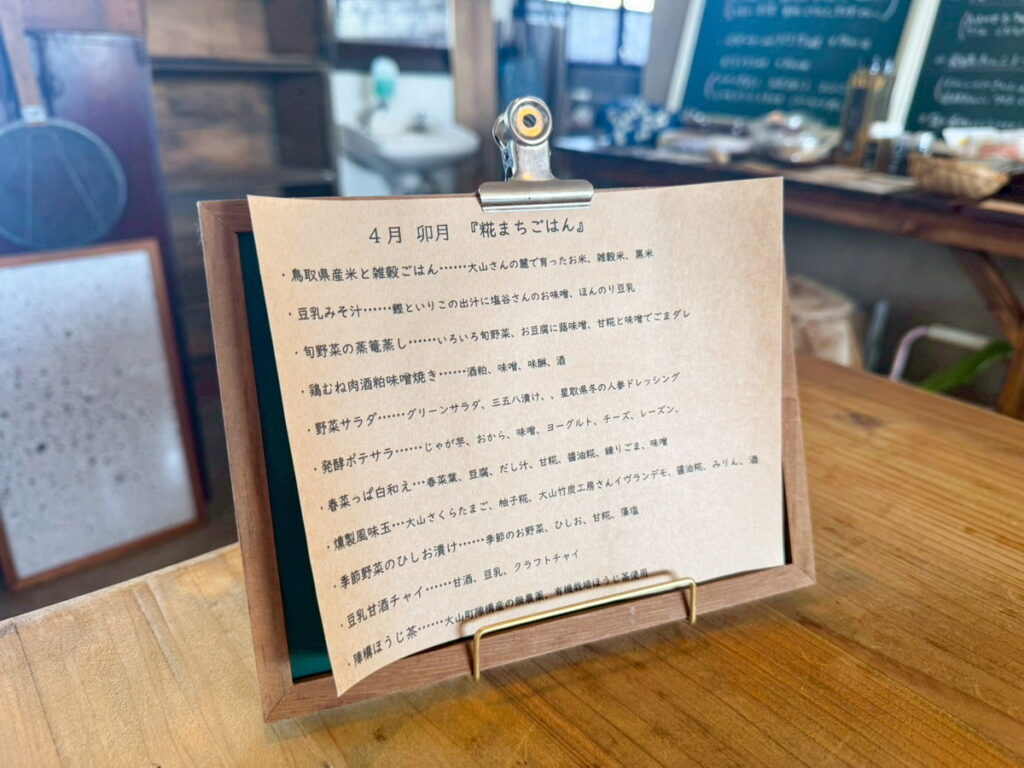 4月 卯月 『糀まちごはん』
・鳥取県産米と雑穀ごはん……大山さんの麓で育ったお米、雑穀米、黒米
・豆乳みそ汁……鰹といりこの出汁に塩谷さんのお味噌、ほんのり豆乳
・旬野菜の蒸篭蒸し……いろいろ旬野菜、お豆腐に蕗味噌、甘糀と味噌でごまダレ
・鶏むね肉酒粕味噌焼き……酒粕、味噌、味醂、酒
・野菜サラダ……グリーンサラダ、三五八漬け、、星取県冬の人参ドレッシング
・発酵ポテサラ……じゃが芋、おから、味噌、ヨーグルト、チーズ、レーズン、
・春菜っぱ白和え…春菜葉、豆腐、だし汁、甘糀、醤油糀、練りごま、味噌
・燻製風味玉…大山さくらたまご、柚子糀、大山竹炭工房さんイヴランデモ、醤油糀、みりん、酒
・季節野菜のひしお漬け……季節のお野菜、ひしお、甘糀、藻塩
・豆乳甘酒チャイ……甘酒、豆乳、クラフトチャイ
・陣構ほうじ茶……大山町陣構産の無農薬、有機栽培ほうじ茶使用